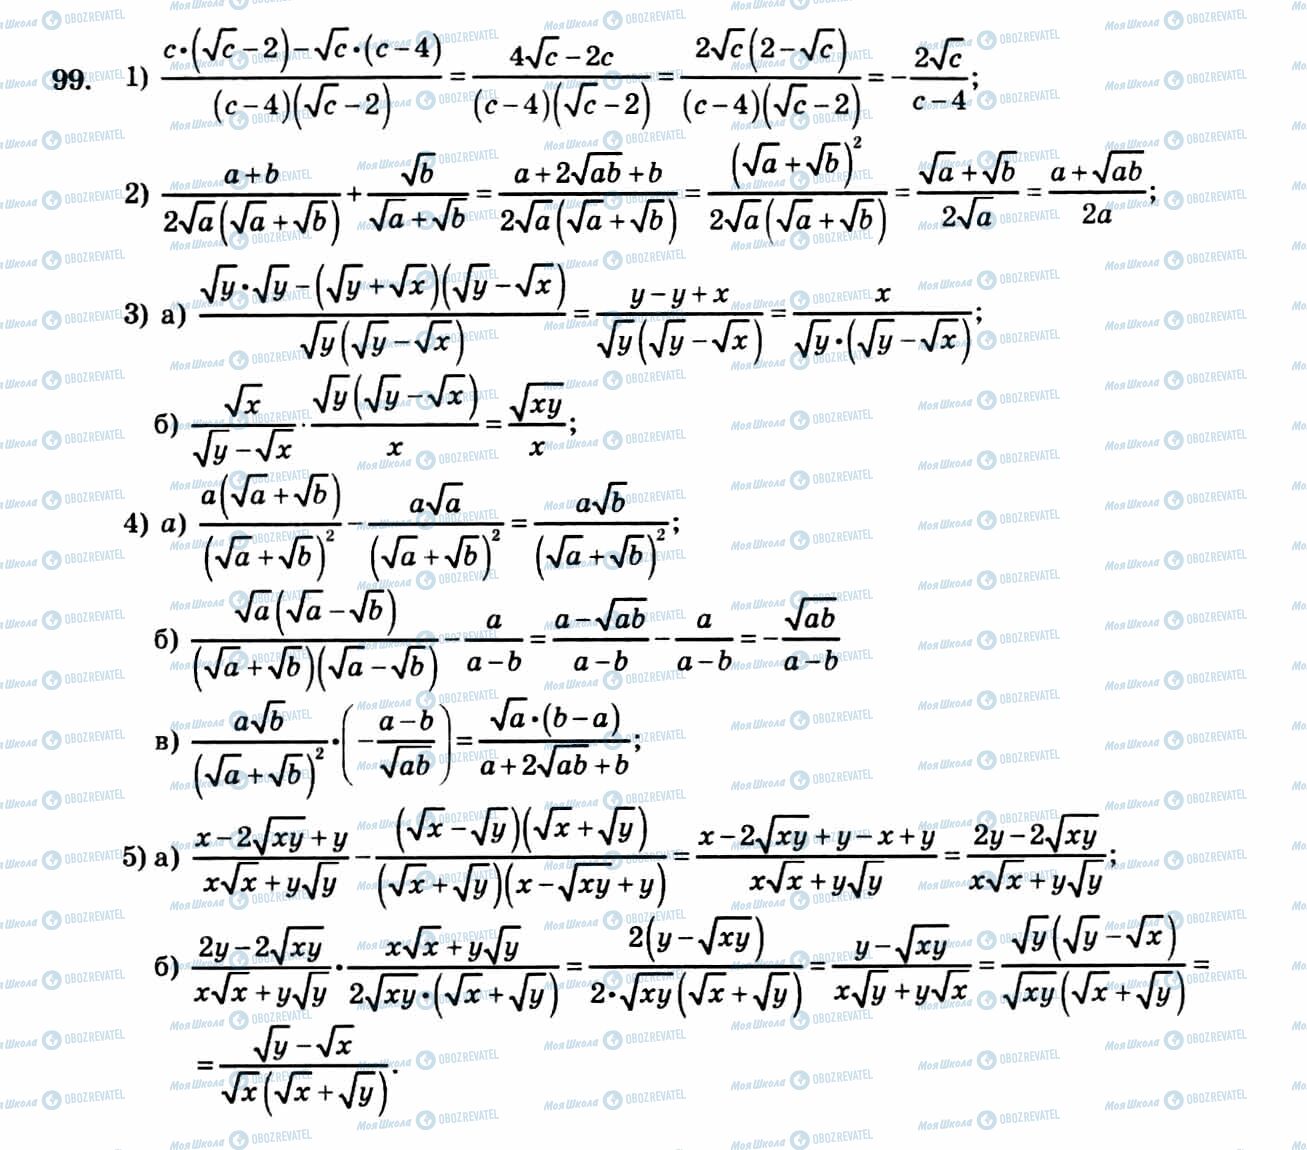 99. 1) \frac{c•(√c−2)−√c•(c−4)}{(c−4)(√c−2)} = \frac{4√c−2c}{(c−4)(√c−2)} = \frac{2√c(2−√c)}{(c−4)(√c−2)} = −\frac{2√c}{c−4};
2) \frac{a+b}{2√a(√a+√b)} + \frac{√b}{√a+√b} = \frac{a+2√{ab}+b}{2√a(√a+√b)} = \frac{(√a+√b)^2}{2√a(√a+√b)} = \frac{√a+√b}{2√a} = \frac{a+√{ab}}{2a};
3) а) \frac{√y•√y−(√y+√x)(√y−√x)}{√y(√y−√x)} = \frac{y−y+x}{√y(√y−√x)} = \frac{x}{√y•(√y−√x)};
б) \frac{√x}{√y−√x} · \frac{√y(√y−√x)}{x} = \frac{√{xy}}{x};
4) а) \frac{a(√a+√b)}{(√a+√b)^2} − \frac{a√a}{(√a+√b)^2} = \frac{a√b}{(√a+√b)^2};
б) \frac{√a(√a−√b)}{(√a+√b)(√a−√b)} − \frac{a}{a−b} = \frac{a−√{ab}}{a−b} − \frac{a}{a−b} = −\frac{√{ab}}{a−b}
в) \frac{a√b}{(√a+√b)^2}•(−\frac{a−b}{√{ab}}) = \frac{√a•(b−a)}{a+2√{ab}+b};
5) а) \frac{x−2√{xy}+y}{x√x+y√y} − \frac{(√x−√y)(√x+√y)}{(√x+√y)(x−√{xy}+y)} = \frac{x−2√{xy}+y−x+y}{x√x+y√y} = \frac{2y−2√{xy}}{x√x+y√y};
б) \frac{2y−2√{xy}}{x√x+y√y}•\frac{x√x+y√y}{2√{xy}•(√x+√y)} = \frac{2(y−√{xy})}{2•√{xy}(√x+√y)} = \frac{y−√{xy}}{x√y+y√x} = \frac{√y(√y−√x)}{√{xy}(√x+√y)} =
= \frac{√y−√x}{√x(√x+√y)}.